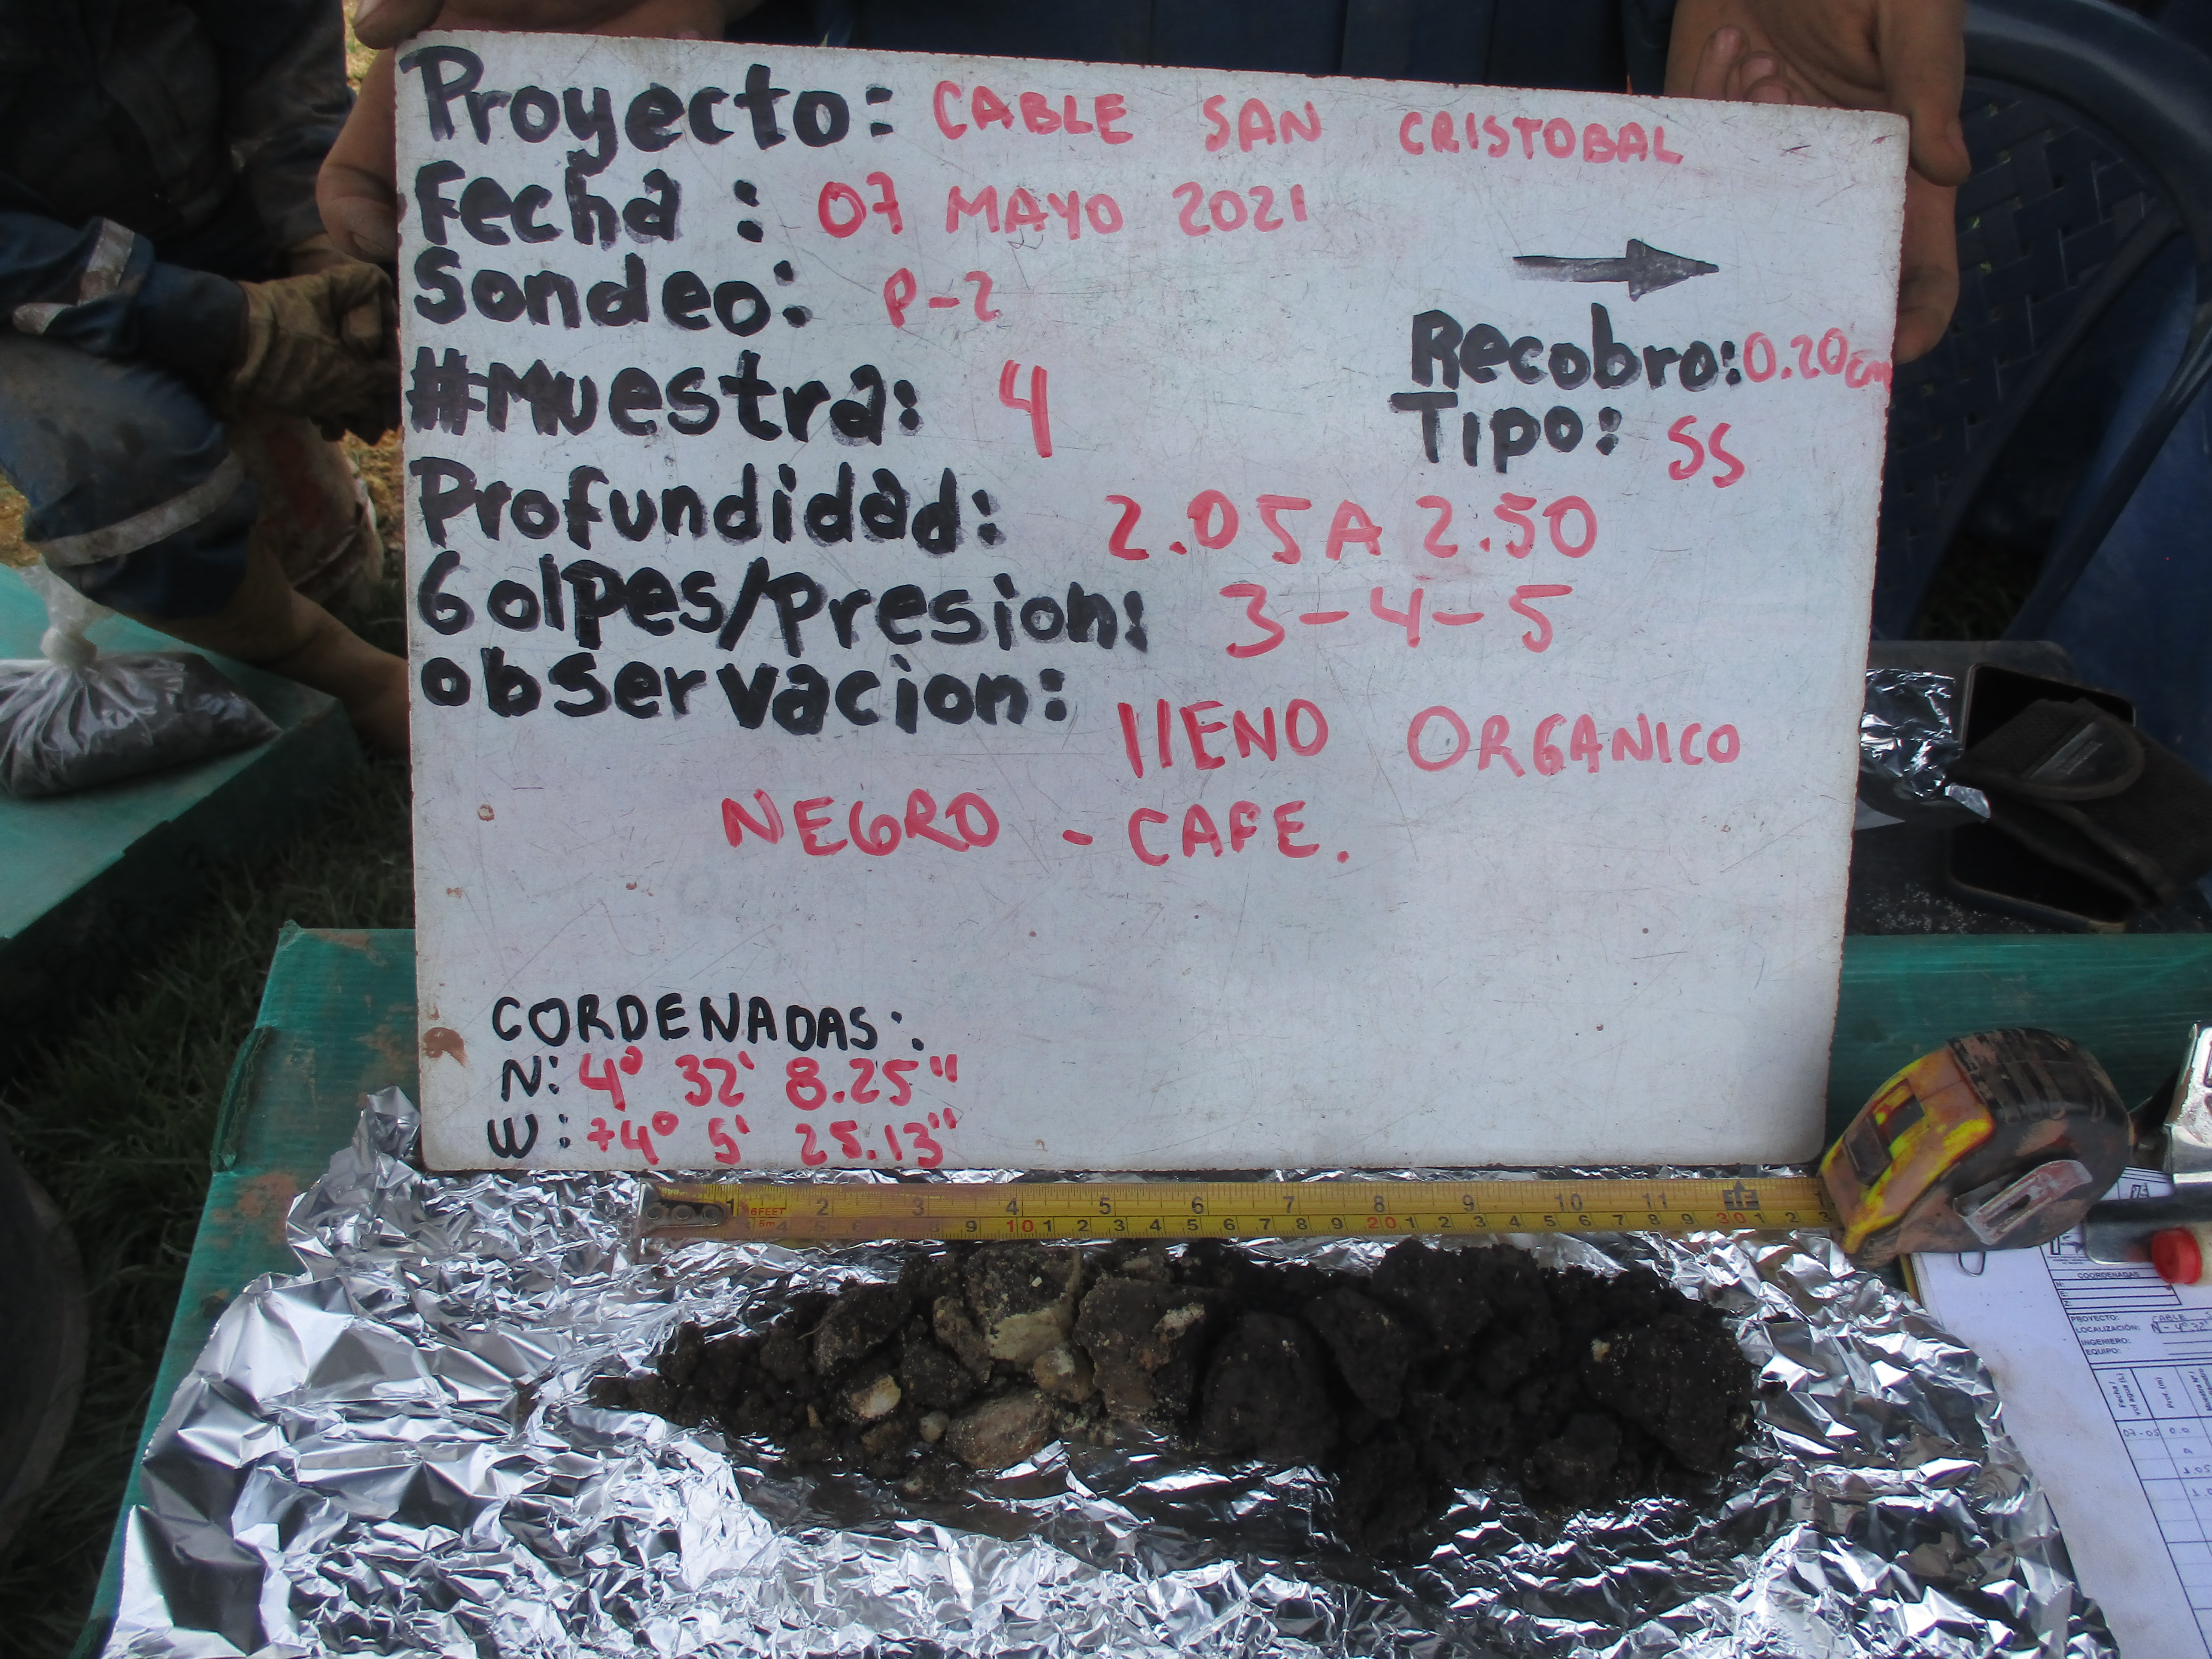 Proyecto: CABLE SAN CRISTOBAL
Fecha : 07 MAYO 2021
Sondeo: P-2
Recobro: 0.20cm
#Muestra: 4
Tipo: SS
Profundidad: 2.05 A 2.50
Golpes/Presion: 3-4-5
observacion: llENO ORGANICO
NEGRO - CAFE.
CORDENADAS:
N: 4° 32' 8.25"
W: 74° 5' 25.13"
1 2 3 4 5 6 7 8 9 10 11
6FEET
5m 4 5 6 7 8 9 10 1 2 3 4 5 6 7 8 9 20 1 2 3 4 5 6 7 8 9 30 1 2 3
COORDENADAS
N:
E:
Z:
PROYECTO: CABLE
LOCALIZACIÓN: N-4° 32'
INGENIERO:
EQUIPO:
Prof. (m)